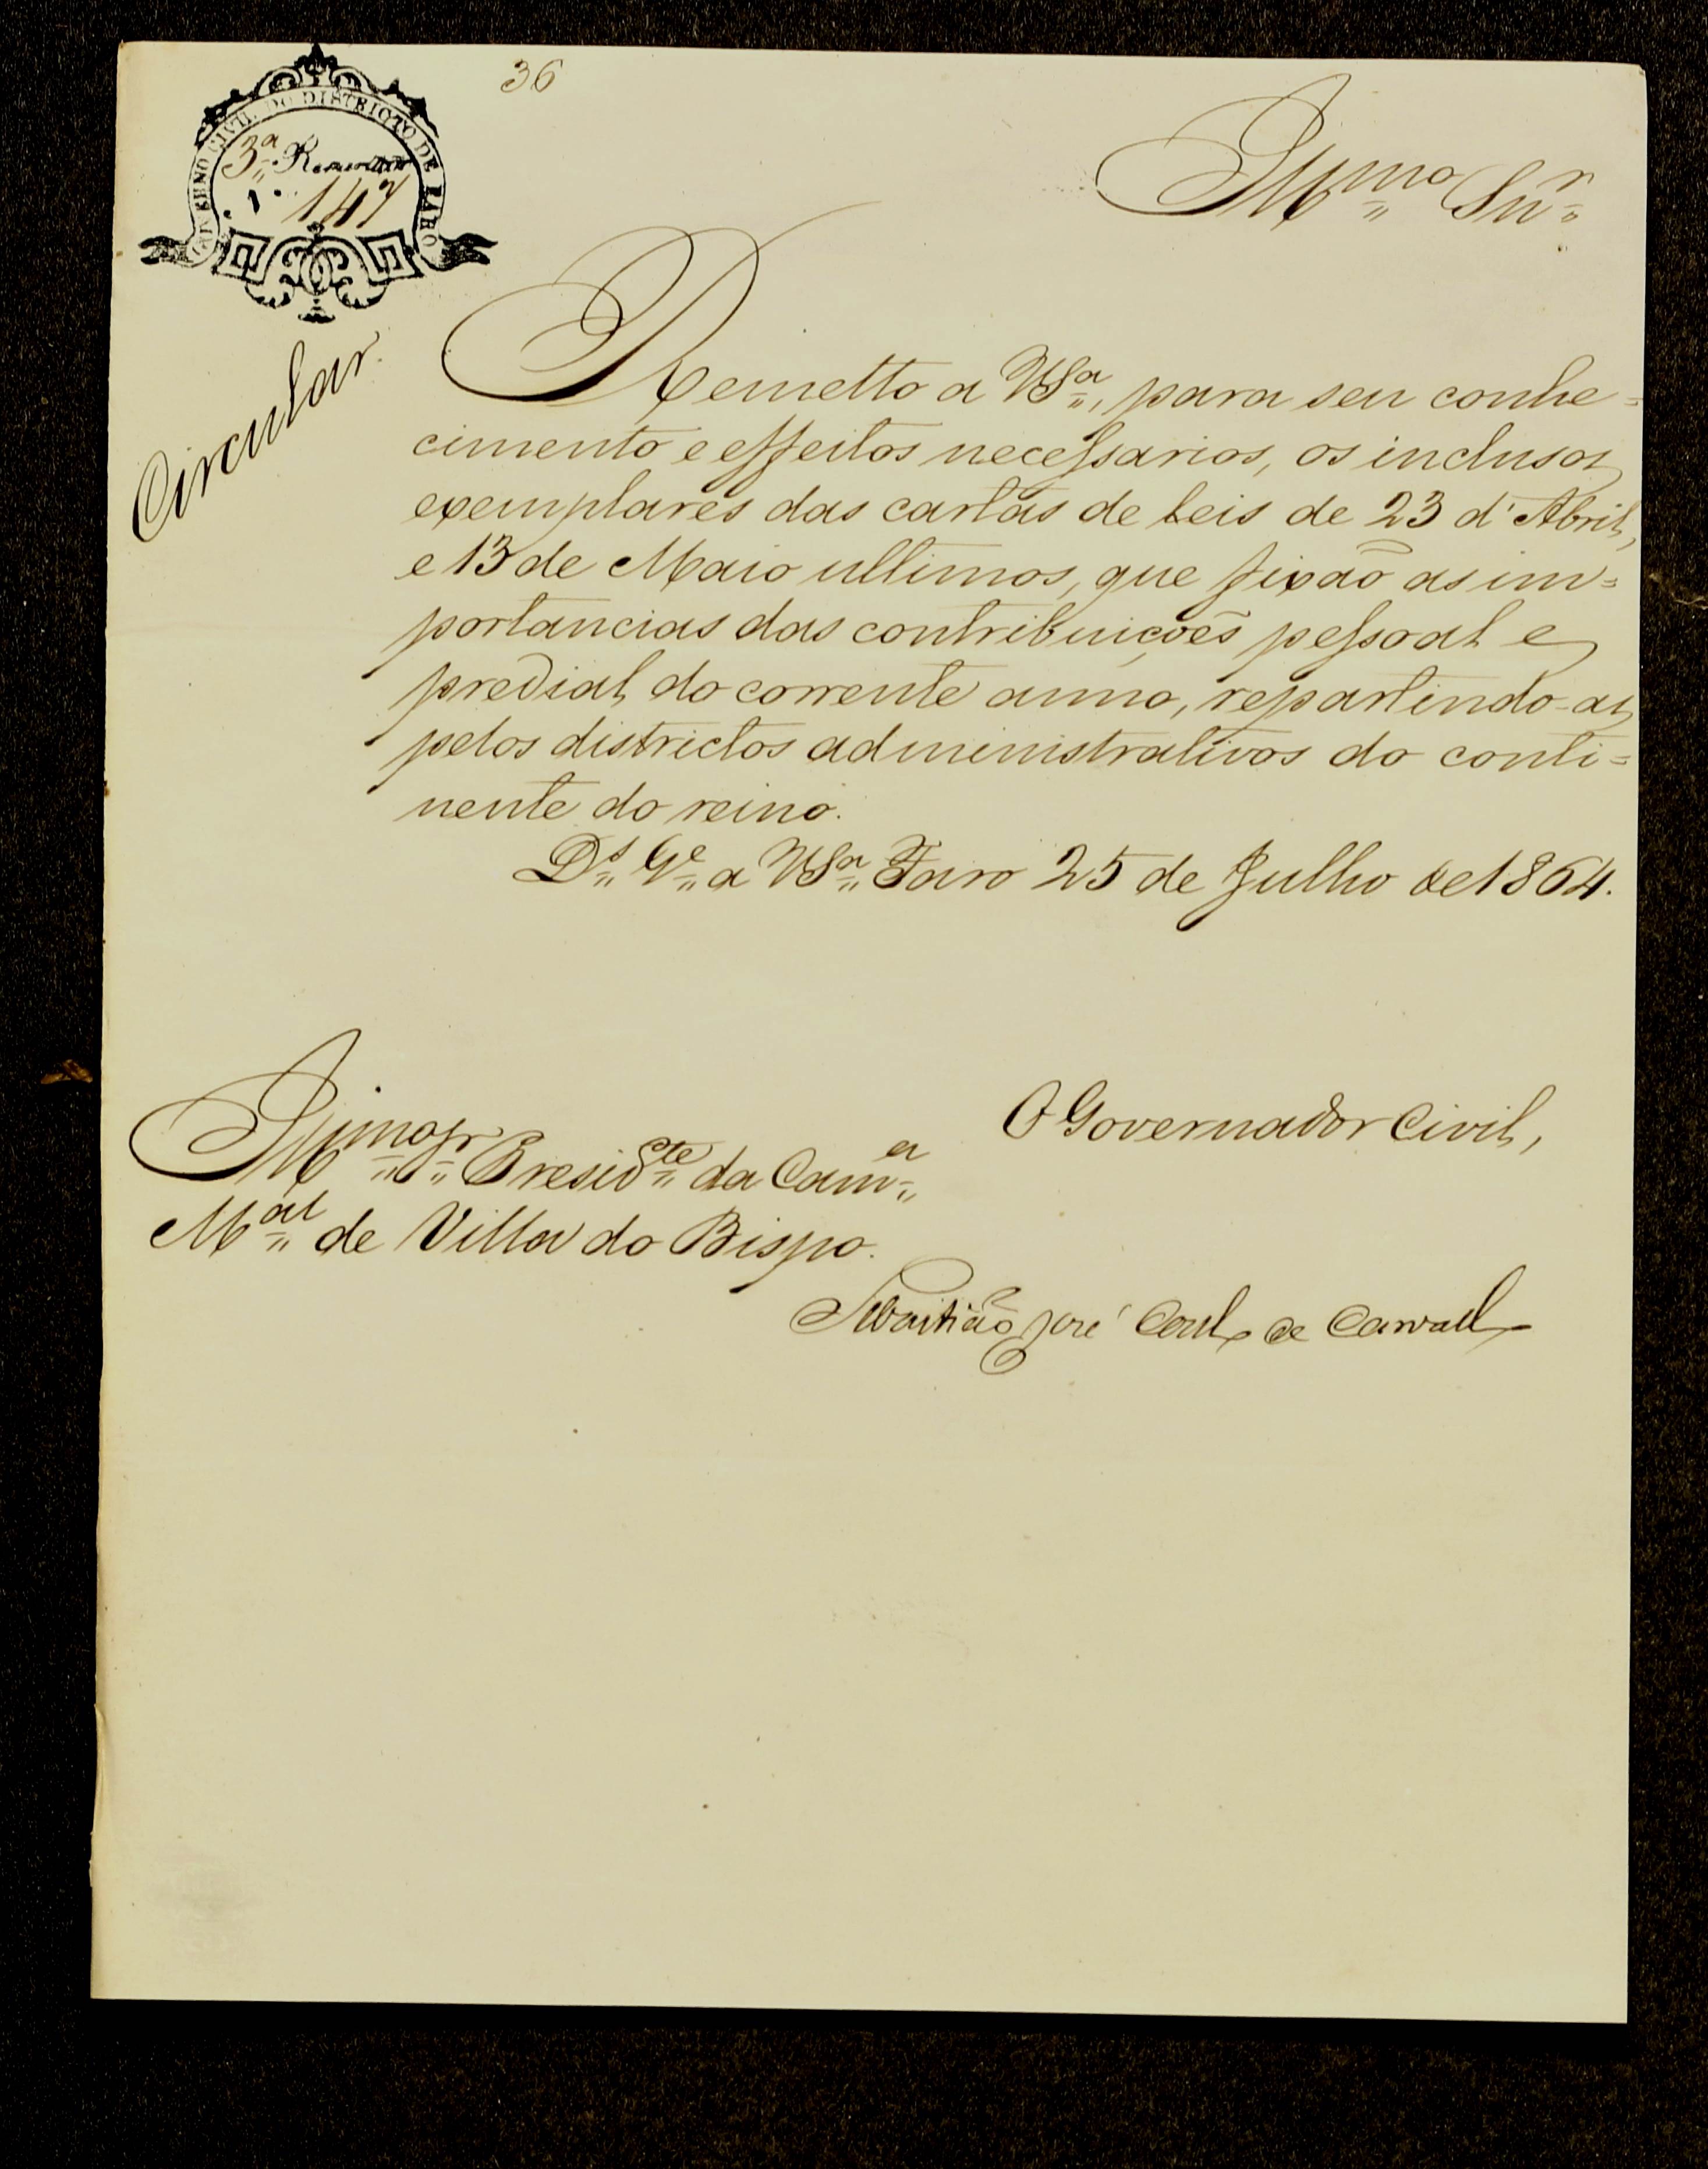 36
GOVERNO CIVIL DO DISTRICTO DE FARO
3ª Repartição
147
Illmo Snr
Circular.
Remetto a VSª, para seu conhe=
cimento e effeitos necessarios, os inclusos
exemplares das cartas de leis de 23 d'Abril,
e 13 de Maio ultimos, que fixão as im=
portancias das contribuições pessoal e
predial, do corrente anno, repartindo-as
pelos districtos administrativos do conti=
nente do reino.
Ds Ge a VSª Faro 25 de Julho de 1864.
O Governador Civil,
Illmo Sr Presidte da Camª
Mal de Villa do Bispo.
Sebastião José de Carvalho